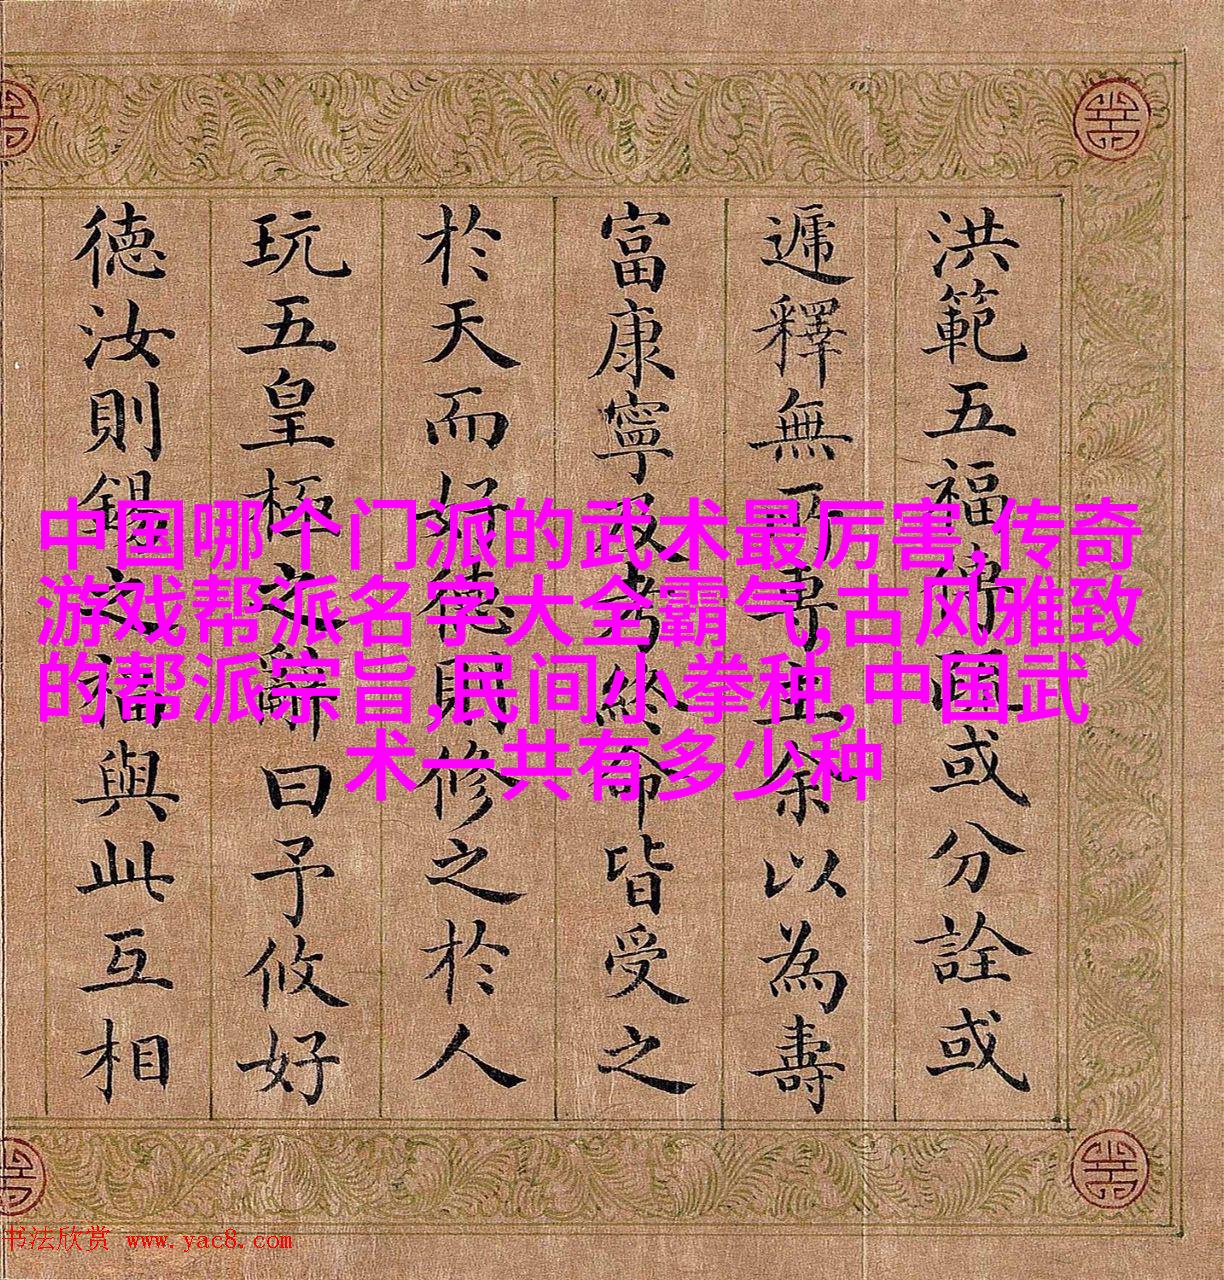 洪範五福或分詮或
遞釋無可余以為壽
富康寧考終命皆受之
於天而好德則修之於人
玩五皇極之辭曰予攸好
德汝則錫之福與此互相
中国哪个门派的武术最厉害,传奇
游戏帮派名字大全霸气,古风雅致
的帮派宗旨,民间小拳种,中国武
术一共有多少种
书法欣赏 www.yac8.com